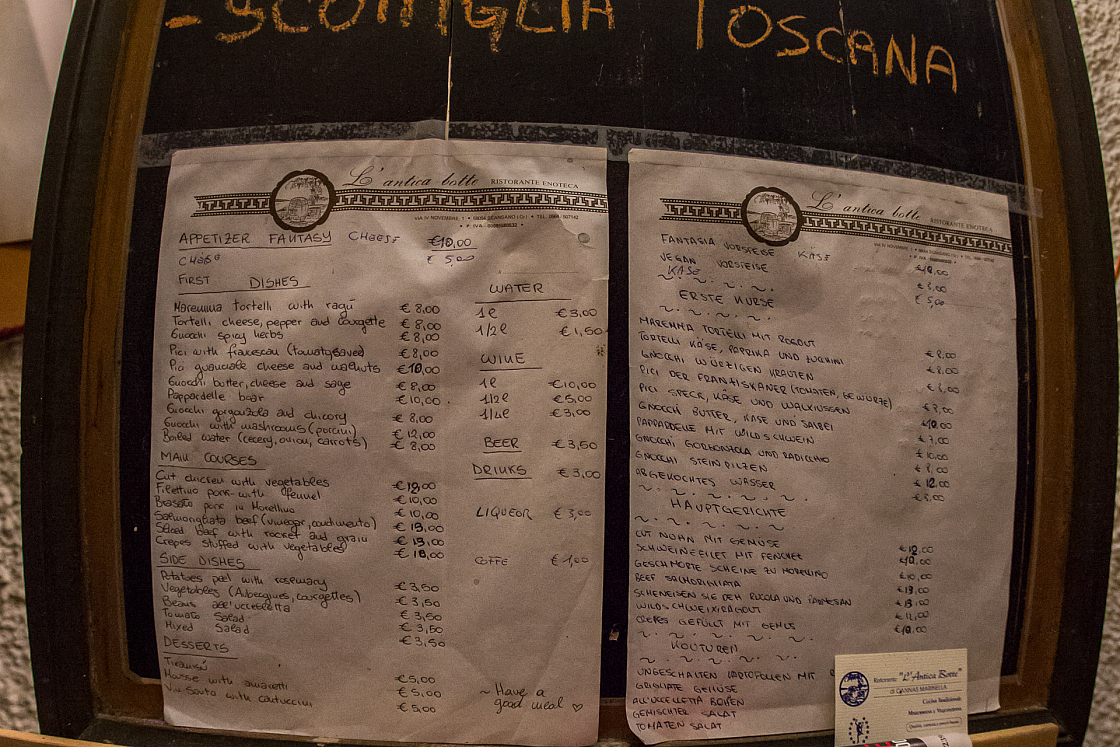 - SCOTTIGLIA TOSCANA
L'antica botte RISTORANTE ENOTECA
VIA IV NOVEMBRE, 1 • 58054 SCANSANO (Gr) • TEL. 0564-507142
APPETIZER FANTASY CHEESE €10,00
€ 5,00
FIRST DISHES
Maremma tortelli with ragù € 8,00
Tortelli cheese, pepper and courgette € 8,00
Gnocchi spicy herbs € 8,00
Pici with € 8,00
Pici guanciale cheese and walnuts €10,00
Gnocchi butter, cheese and sage € 8,00
Pappardelle boar €10,00
Gnocchi gorgonzola and chicory € 8,00
Gnocchi with mushrooms (porcini) € 12,00
Boiled water (celery, onion, carrots) € 8,00
MAIN COURSES
Cut chicken with vegetables
Filettino pork with fennel €10,00
Brasato pork in Morellino € 10,00
beef (vinegar,
beef with rocket and grain
Crepes stuffed with vegetables
SIDE DISHES
Potatoes peel with rosemary € 3,50
Vegetables (Aubergines, courgettes) € 3,50
Beans all'uccelletta € 3,50
Tomato Salad € 3,50
Mixed Salad € 3,50
DESSERTS
Tiramisù €5,00
Mousse with amaretti € 5,00
Vin Santo with cantuccini € 5,00
WATER
1l €3,00
1/2l €1,50
WINE
1l €10,00
1/2l €5,00
1/4l €3,00
BEER €3,50
DRINKS €3,00
LIQUEUR €3,00
COFFE €1,00
~ Have a
good meal ♡
L'antica botte RISTORANTE ENOTECA
FANTASIA VORSPEISE KÄSE
VEGAN VORSPEISE
KÄSE € 5,00
ERSTE KURSE
MAREMMA TORTELLI MIT RAGOUT € 8,00
TORTELLI KÄSE, PAPRIKA UND ZUCHINI € 8,00
GNOCCHI WÜRZIGEN KRAUTEN € 8,00
PICI DER FRANZISKANER (TOMATEN, GEWÜRZE)
PICI SPECK, KÄSE UND WALNUSSEN €10,00
GNOCCHI BUTTER, KÄSE UND SALBEI
PAPPARDELLE MIT WILDSCHWEIN € 10,00
GNOCCHI GORGONZOLA UND RADICCHIO € 8,00
GNOCCHI STEINPILZEN € 12,00
ABGEKOCHTES WASSER € 8,00
HAUPTGERICHTE
CUT HUHN MIT GEMÜSE
SCHWEINEFILET MIT FENCHEL
GESCHMORTE SCHEINE ZU MORELLINO € 10,00
BEEF
SCHENEISEN SIE DEN RUCOLA UND PARMESAN
WILDSCHWEINRAGOUT
CREPES GEFÜLLT MIT GEMUS
KOUTUREN
UNGESCHALTEN KARTOFOLLEN MIT
GRIGLIATE GEMÜSE
ALL'UCCELLETTA BOHEN
GEMISCHTER SALAT
TOMATEN SALAT
Ristorante "L'Antica Botte"
di CANNAS MARINELLA
Cucina Tradizionale
Maremmana e Vegetariana